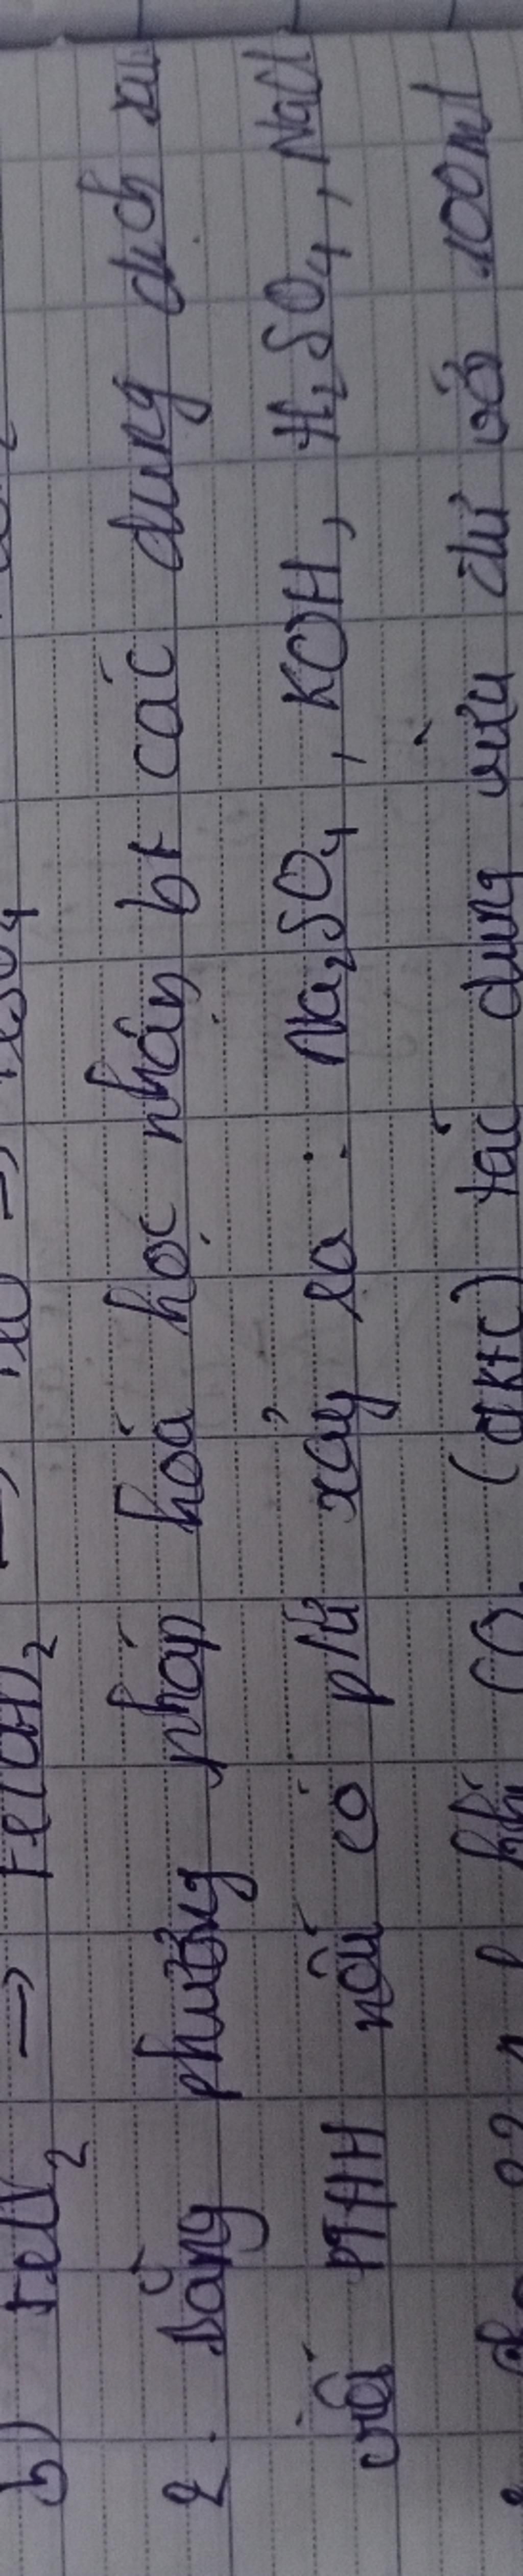 b) FeCl2 → Fe(OH)2
2. Bằng phương pháp hoá học nhận bt các dung dịch sau
viết PTHH nếu có pứ xảy ra : Na2SO4, KOH, H2SO4, NaCl
khí CO2 (đktc) tác dụng vừa đủ với 100ml